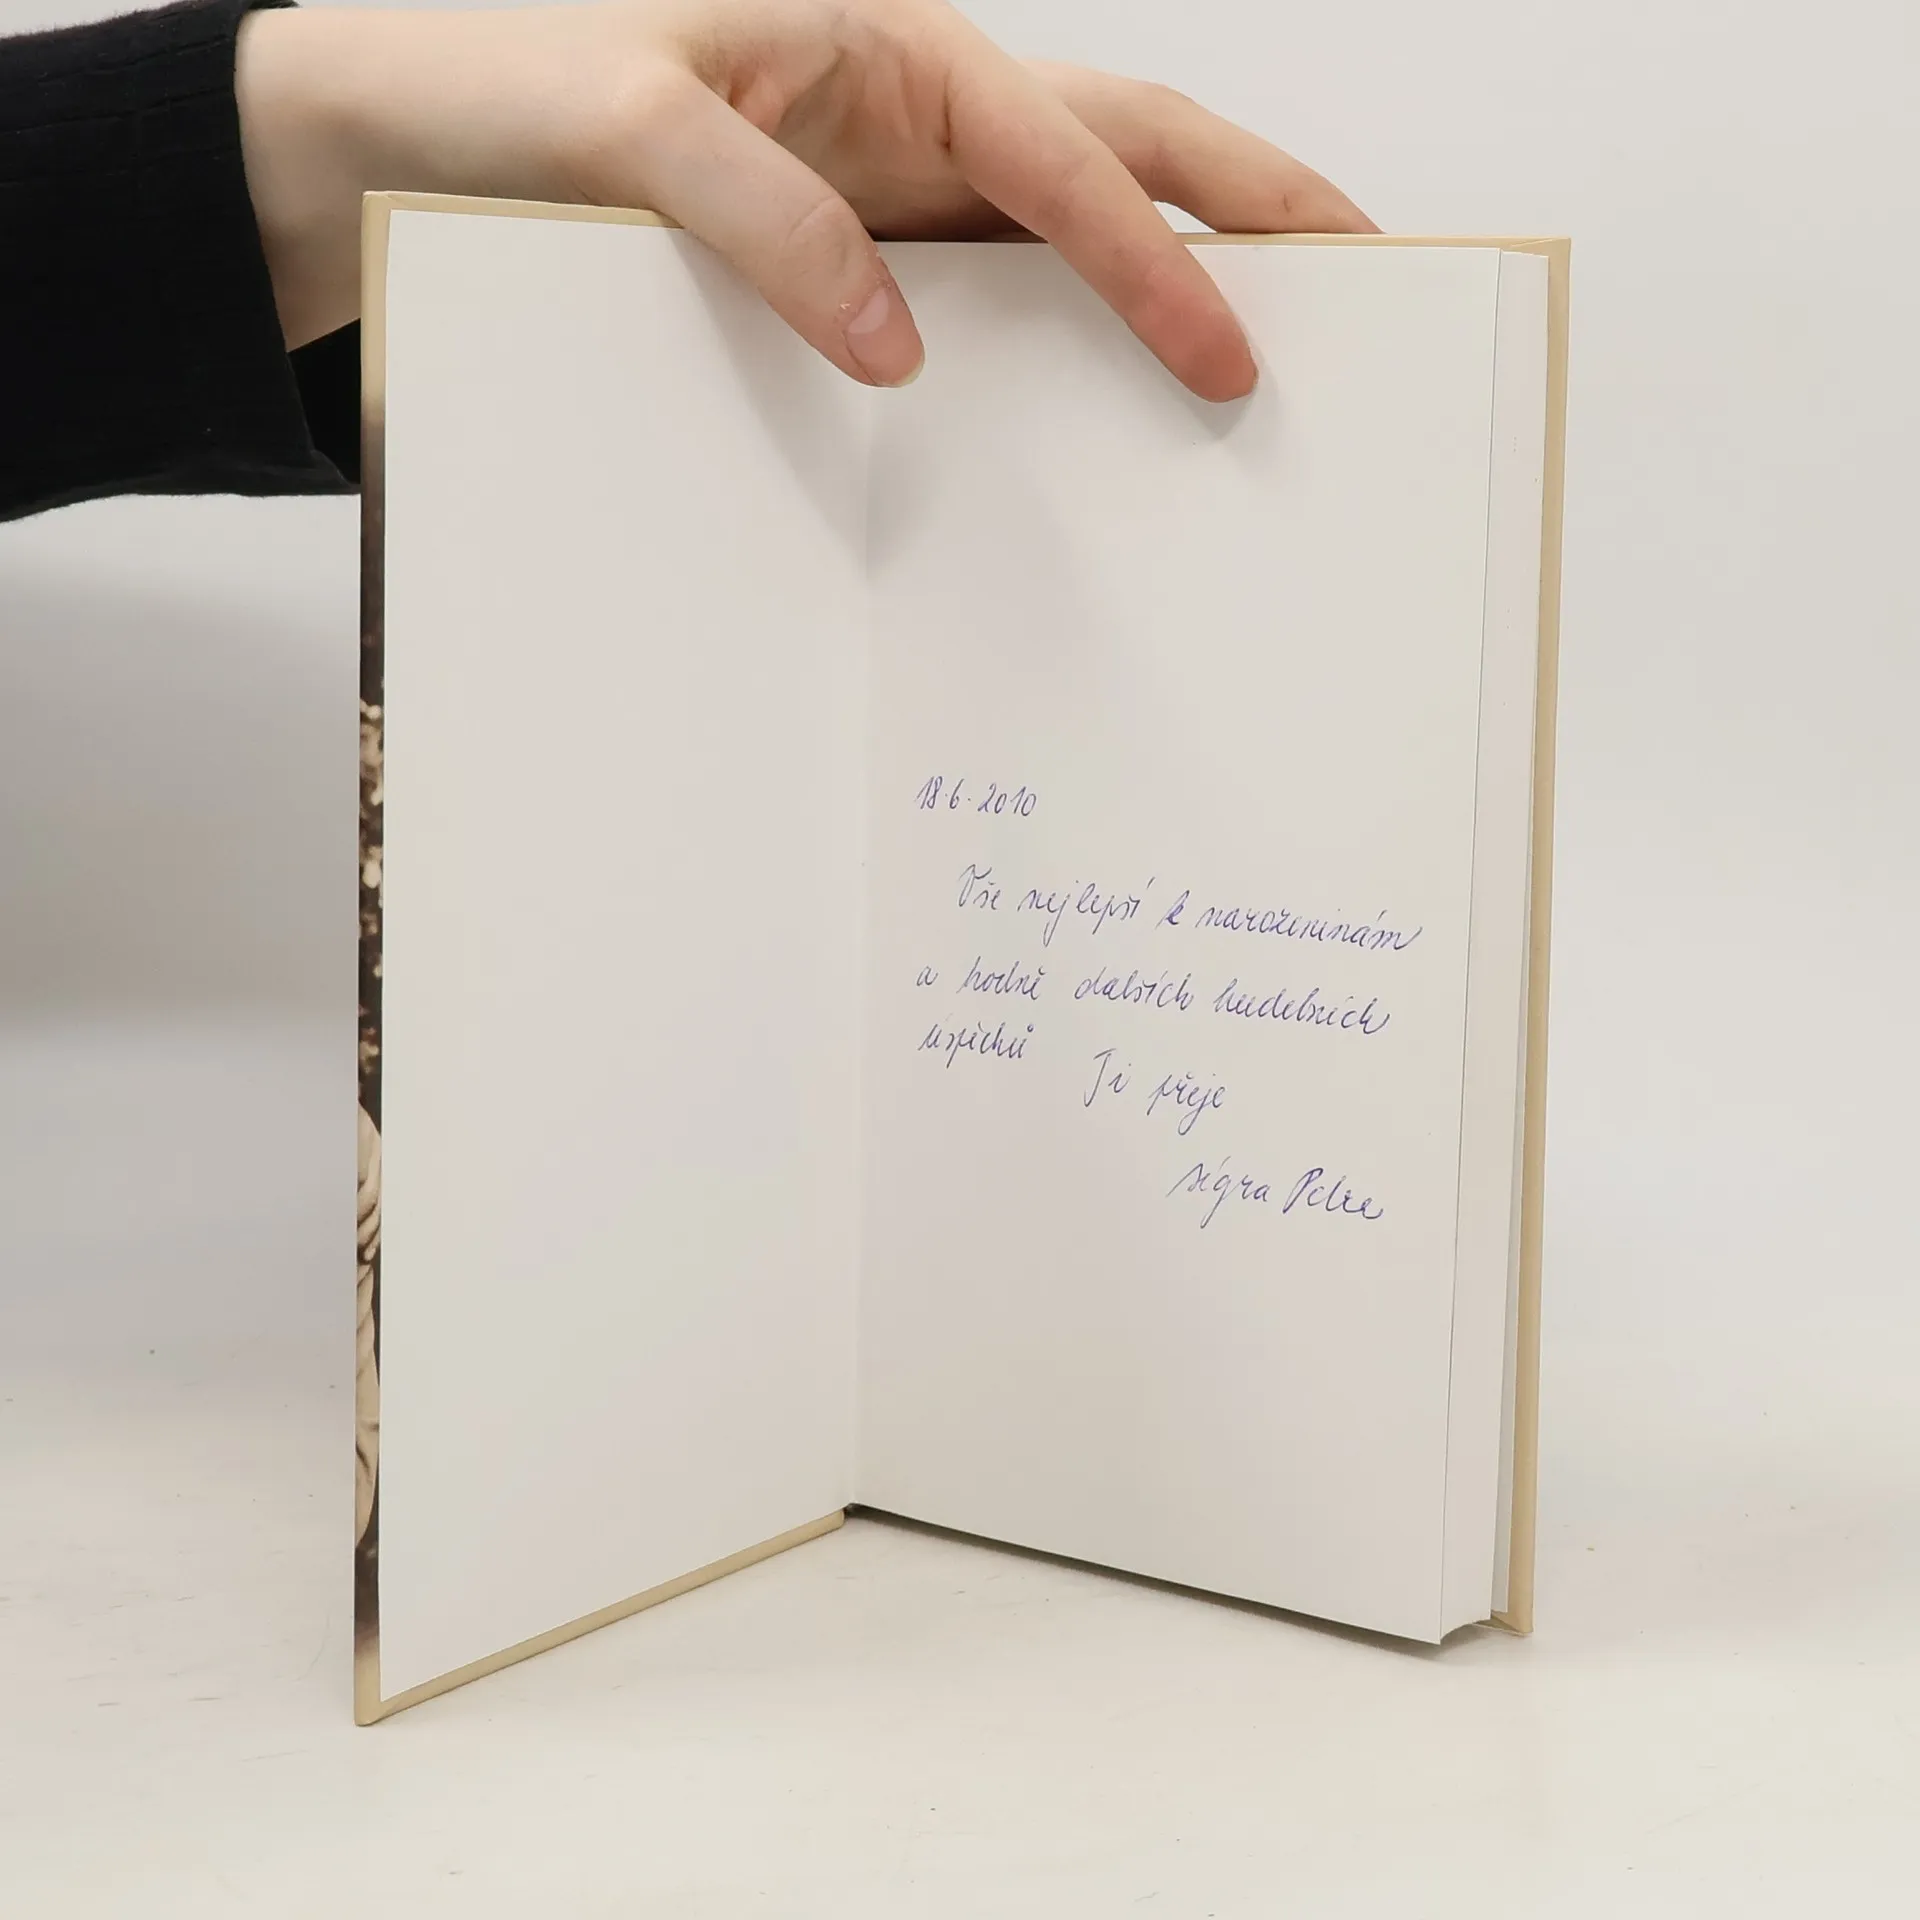 18.6.2010
Vše nejlepší k narozeninám
a hodně dalších hudebních
úspěchů Ti přeje
ségra